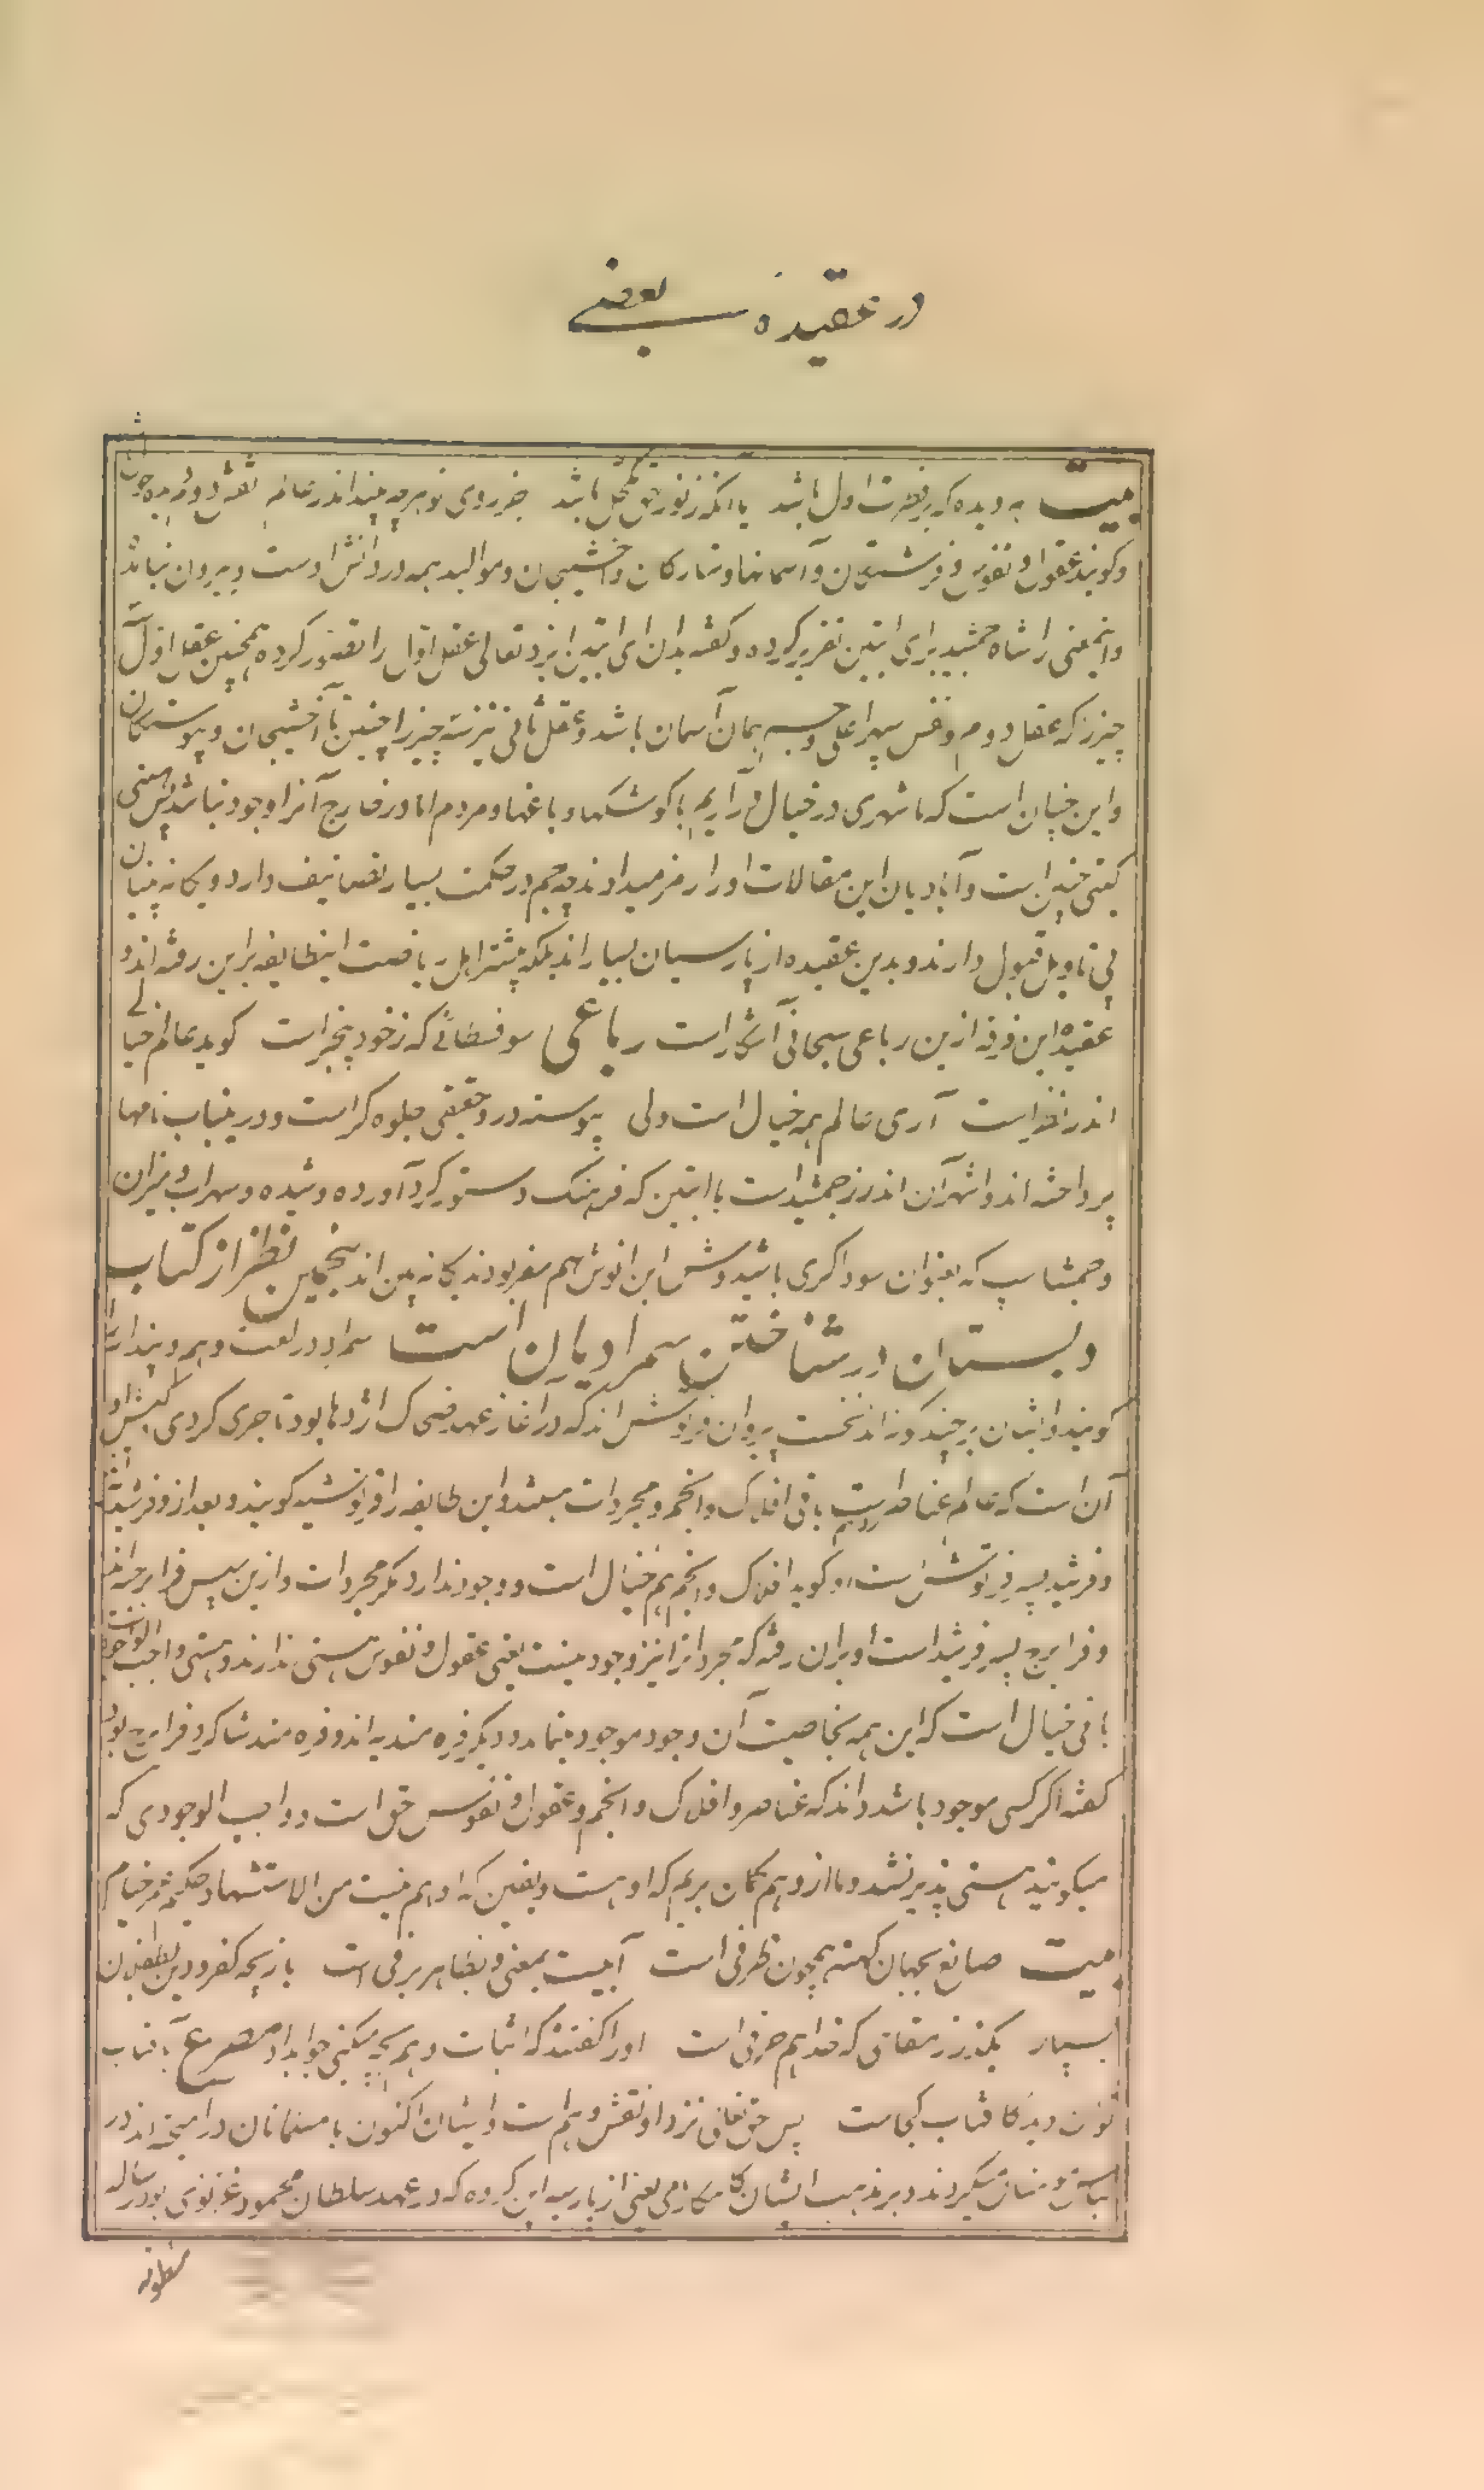 در عقیده بعضے
بیت به دیده که بفطرت اول باشد یا آنکه ز نور حق مکحل باشد جز روی تو هرچه بیند اندر عالم نقش دوم
و کویند عقول و نفوس و فرشتکان و آسمانها و ستارکان و اخشیجان و موالید همه در دانش اوست و بیرون نباشد
و اینمعنی را شاه جمشید برای ابتین تقریر کرده و کفته بدان ای ابتین ایزد تعالی عقل اول را تصور کرده همچنین عقل اول سه
چیز را که عقل دوم و نفس سپهر اعلی و جسم همان آسمان باشد و عقل ثانی نیز سه چیز را چنین تا آخشیجان و پیوستکان
و این چنان است که ما شهری در خیال در آریم با کوشکها و باغها و مردم اما در خارج آنرا وجود نباشد پس هستی
کیتی چنین است و آبادیان این مقالات او را رمز میدانند چه جم در حکمت بسیار تصانیف دارد و یکانه بینان
بی تاویل قبول دارند و بدین عقیده از پارسیان بسیار اند بلکه بیشتر اهل ریاضت اینطایفه براین رفته اند و
عقیده این فرقه ازین رباعی سبحانی آشکار است رباعی سوفسطائی که ز خود بیخبر است کوید عالم خیالی
اندر کذر است آری عالم همه خیال است ولی پیوسته درو حقیقتی جلوه کر است و در ینباب نامها
پرداخته اند و اشهر آن اندرز جمشید است با ابتین که فرهنک دستور کرد آورده و شیده و سهراب و میزان
و جمشاسپ که بعنوان سوداکری باشید و ش ابن انوش هم سفر بودند یکانه بین اند پنجمین نظر از کتاب
دبستان در شناختن سمرادیان است سمراد در لغت وهم و پندار است
کویند و ایشان بر چند کونه اند نخست پیروان فرتوش اند که در آغاز عهد ضحاک اژدها بود تاجری کردی کیش او
آن است که عالم عناصر وهم است باقی افلاک و انجم و مجردات هستند و این طایفه را فرتوشیه کویند و بعد از و فرشید
و فرشید پسر فرتوش است او کوید افلاک و انجم هم خیال است و وجود ندارد مکر مجردات و ازین سپس فرایرجیه اند
و فرایرج پسر فرشید است او بران رفته که مجردات را نیز وجود نیست یعنی عقول و نفوس هستی ندارند و هستی واجب الوجود است
باقی خیال است که این همه بخاصیت آن وجود موجود مینماید و دیکر فره مندیه اند و فره مند شاکرد فرایرج بود
کفته اکر کسی موجود باشد داند که عناصر و افلاک و انجم و عقول و نفوس حق است و واجب الوجودی که
میکویند هستی پذیر نشد و ما از وهم کمان بریم که او هست و یقین که او هم نیست من الاستشهاد حکیم عمر خیام
بیت صانع بجهان کهنه همچون ظرفی است آبیست بمعنی و بظاهر برفی است بازیچه کفر و دین بطفلان
بسپار بکذر ز مقامی که خدا هم حرفی است او را کفتند که اثبات وهم بچه میکنی جواب داد مصرع آفتاب
توان دید کافتاب کجاست پس حق تعالی نزد او نقش وهم است و ایشان اکنون با مسلمانان درآمیخته اند در
لباس مسلمانان میکردند و بر مذهب ایشان کامکار نامی یعنی از پارسیه این کروه که در عهد سلطان محمود غزنوی بود رساله
منظومه